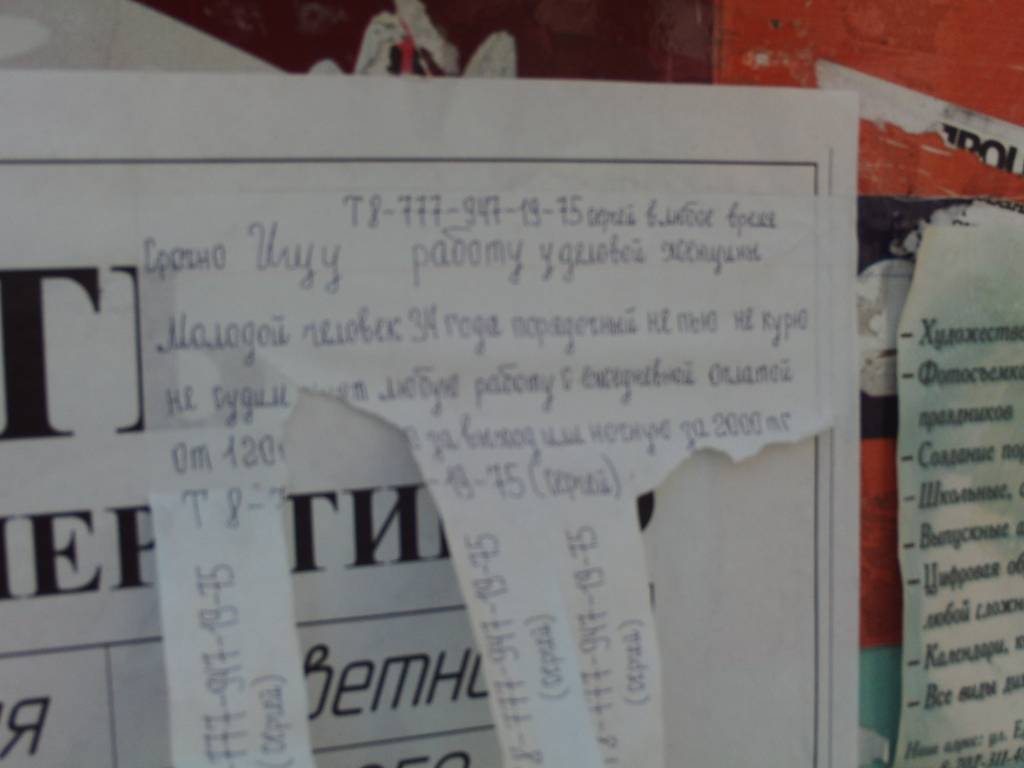 Т 8-777-947-19-75 сергей в любое время
Срочно Ищу работу у деловой женщины
Молодой человек 34 года порядочный не пью не курю
не судим любую работу с ежедневной оплатой
от 120 за выход или ночную за 2000 тг
Т 8-7 -19-75 (сергей)
777-947-19-75
(сергей)
8-777-947-19-75
(сергей)
8-777-947-19-75
(сергей)
ветно
- Художестве
- Фотосъемка
праздников
- Создание пор
- Школьные,
- Выпускные а
- Цифровая об
любой сложн
- Календари, к
- Все виды диз
Наш адрес: ул.